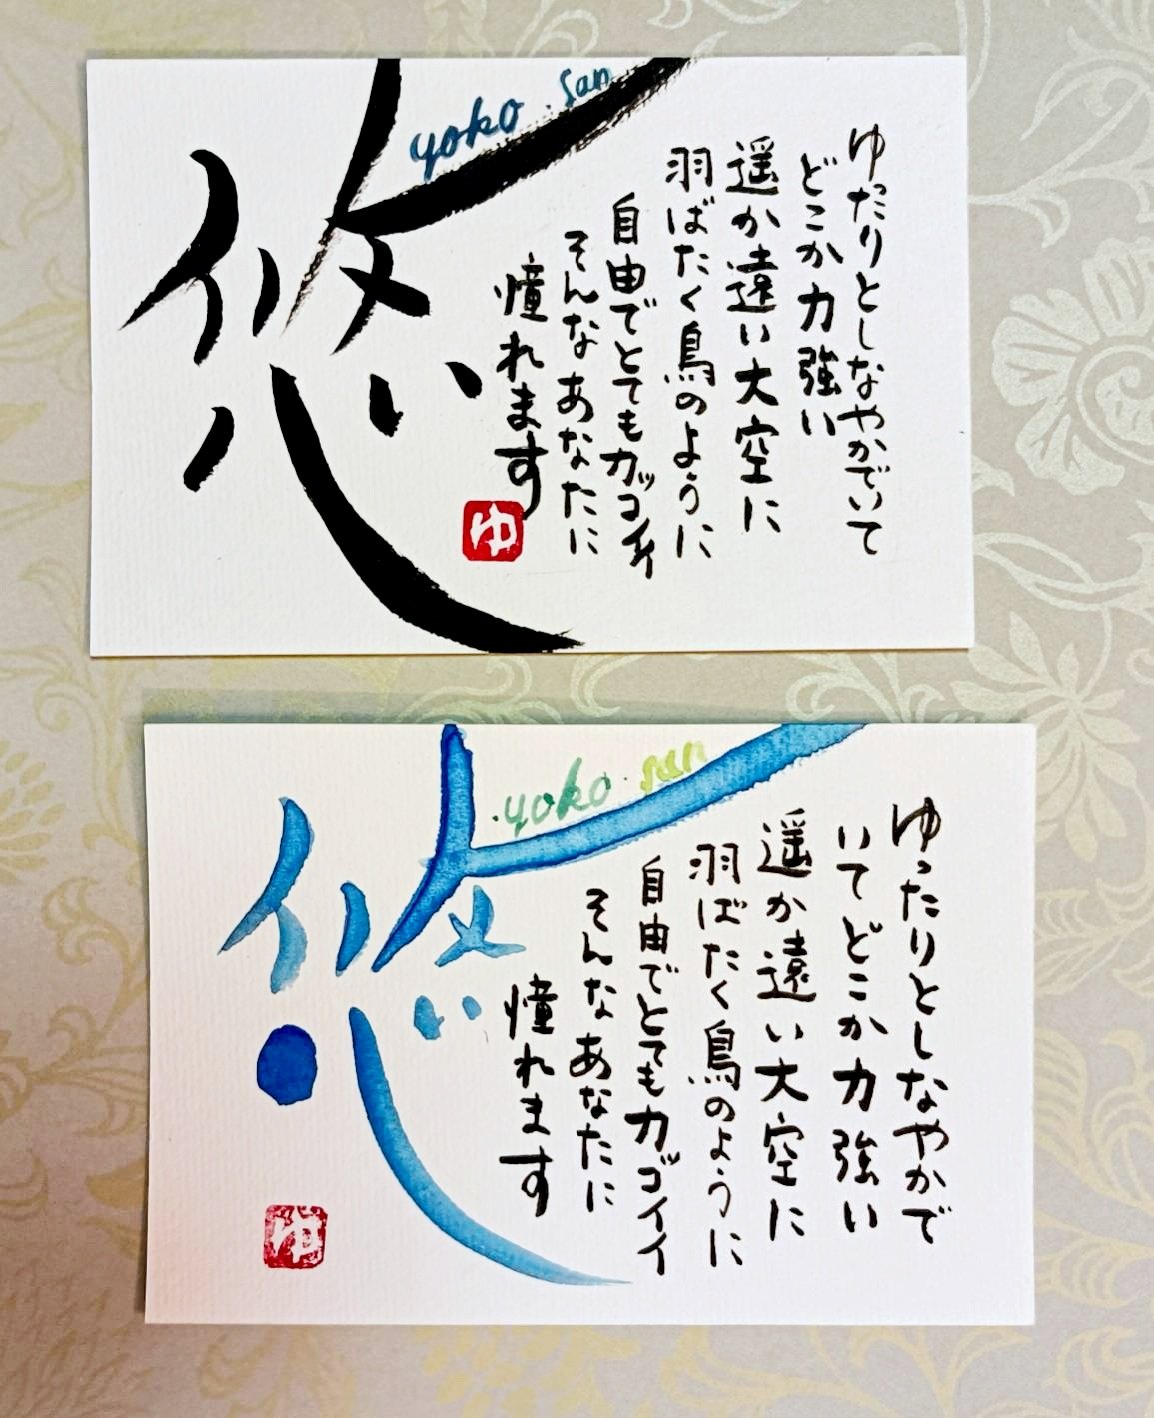 悠
yoko san
ゆったりとしなやかでいて
どこか力強い
遥か遠い大空に
羽ばたく鳥のように
自由でとてもカッコイイ
そんなあなたに
憧れます
ゆ
悠
yoko san
ゆったりとしなやかで
いてどこか力強い
遥か遠い大空に
羽ばたく鳥のように
自由でとてもカッコイイ
そんなあなたに
憧れます
ゆ